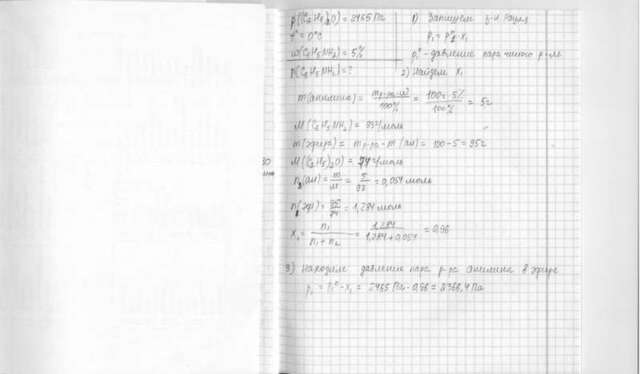 p((C₂H₅)₂O) = 2465 Па
t° = 0°C
ω(C₆H₅NH₂) = 5%
p(C₆H₅NH₂) = ?
1) Запишем з-н Рауля
p₁ = p₁°·x₁
p₁° - давление пара чистого р-ля
2) Найдем x₁
m(анилина) = mр-ра·ω / 100% = 100г·5% / 100% = 5г
M(C₆H₅NH₂) = 93г/моль
m(эфира) = mр-ра - m(ан) = 100 - 5 = 95г
M(C₂H₅)₂O) = 74г/моль
n₂(ан) = m/M = 5/93 = 0,054 моль
n₁(эф) = 95/74 = 1,284 моль
x₁ = n₁ / n₁ + n₂ = 1,284 / 1,284 + 0,054 = 0,96
3) Находим давление пара р-ра анилина в эфире
p₁ = p₁°·x₁ = 2465 Па · 0,96 = 2366,4 Па